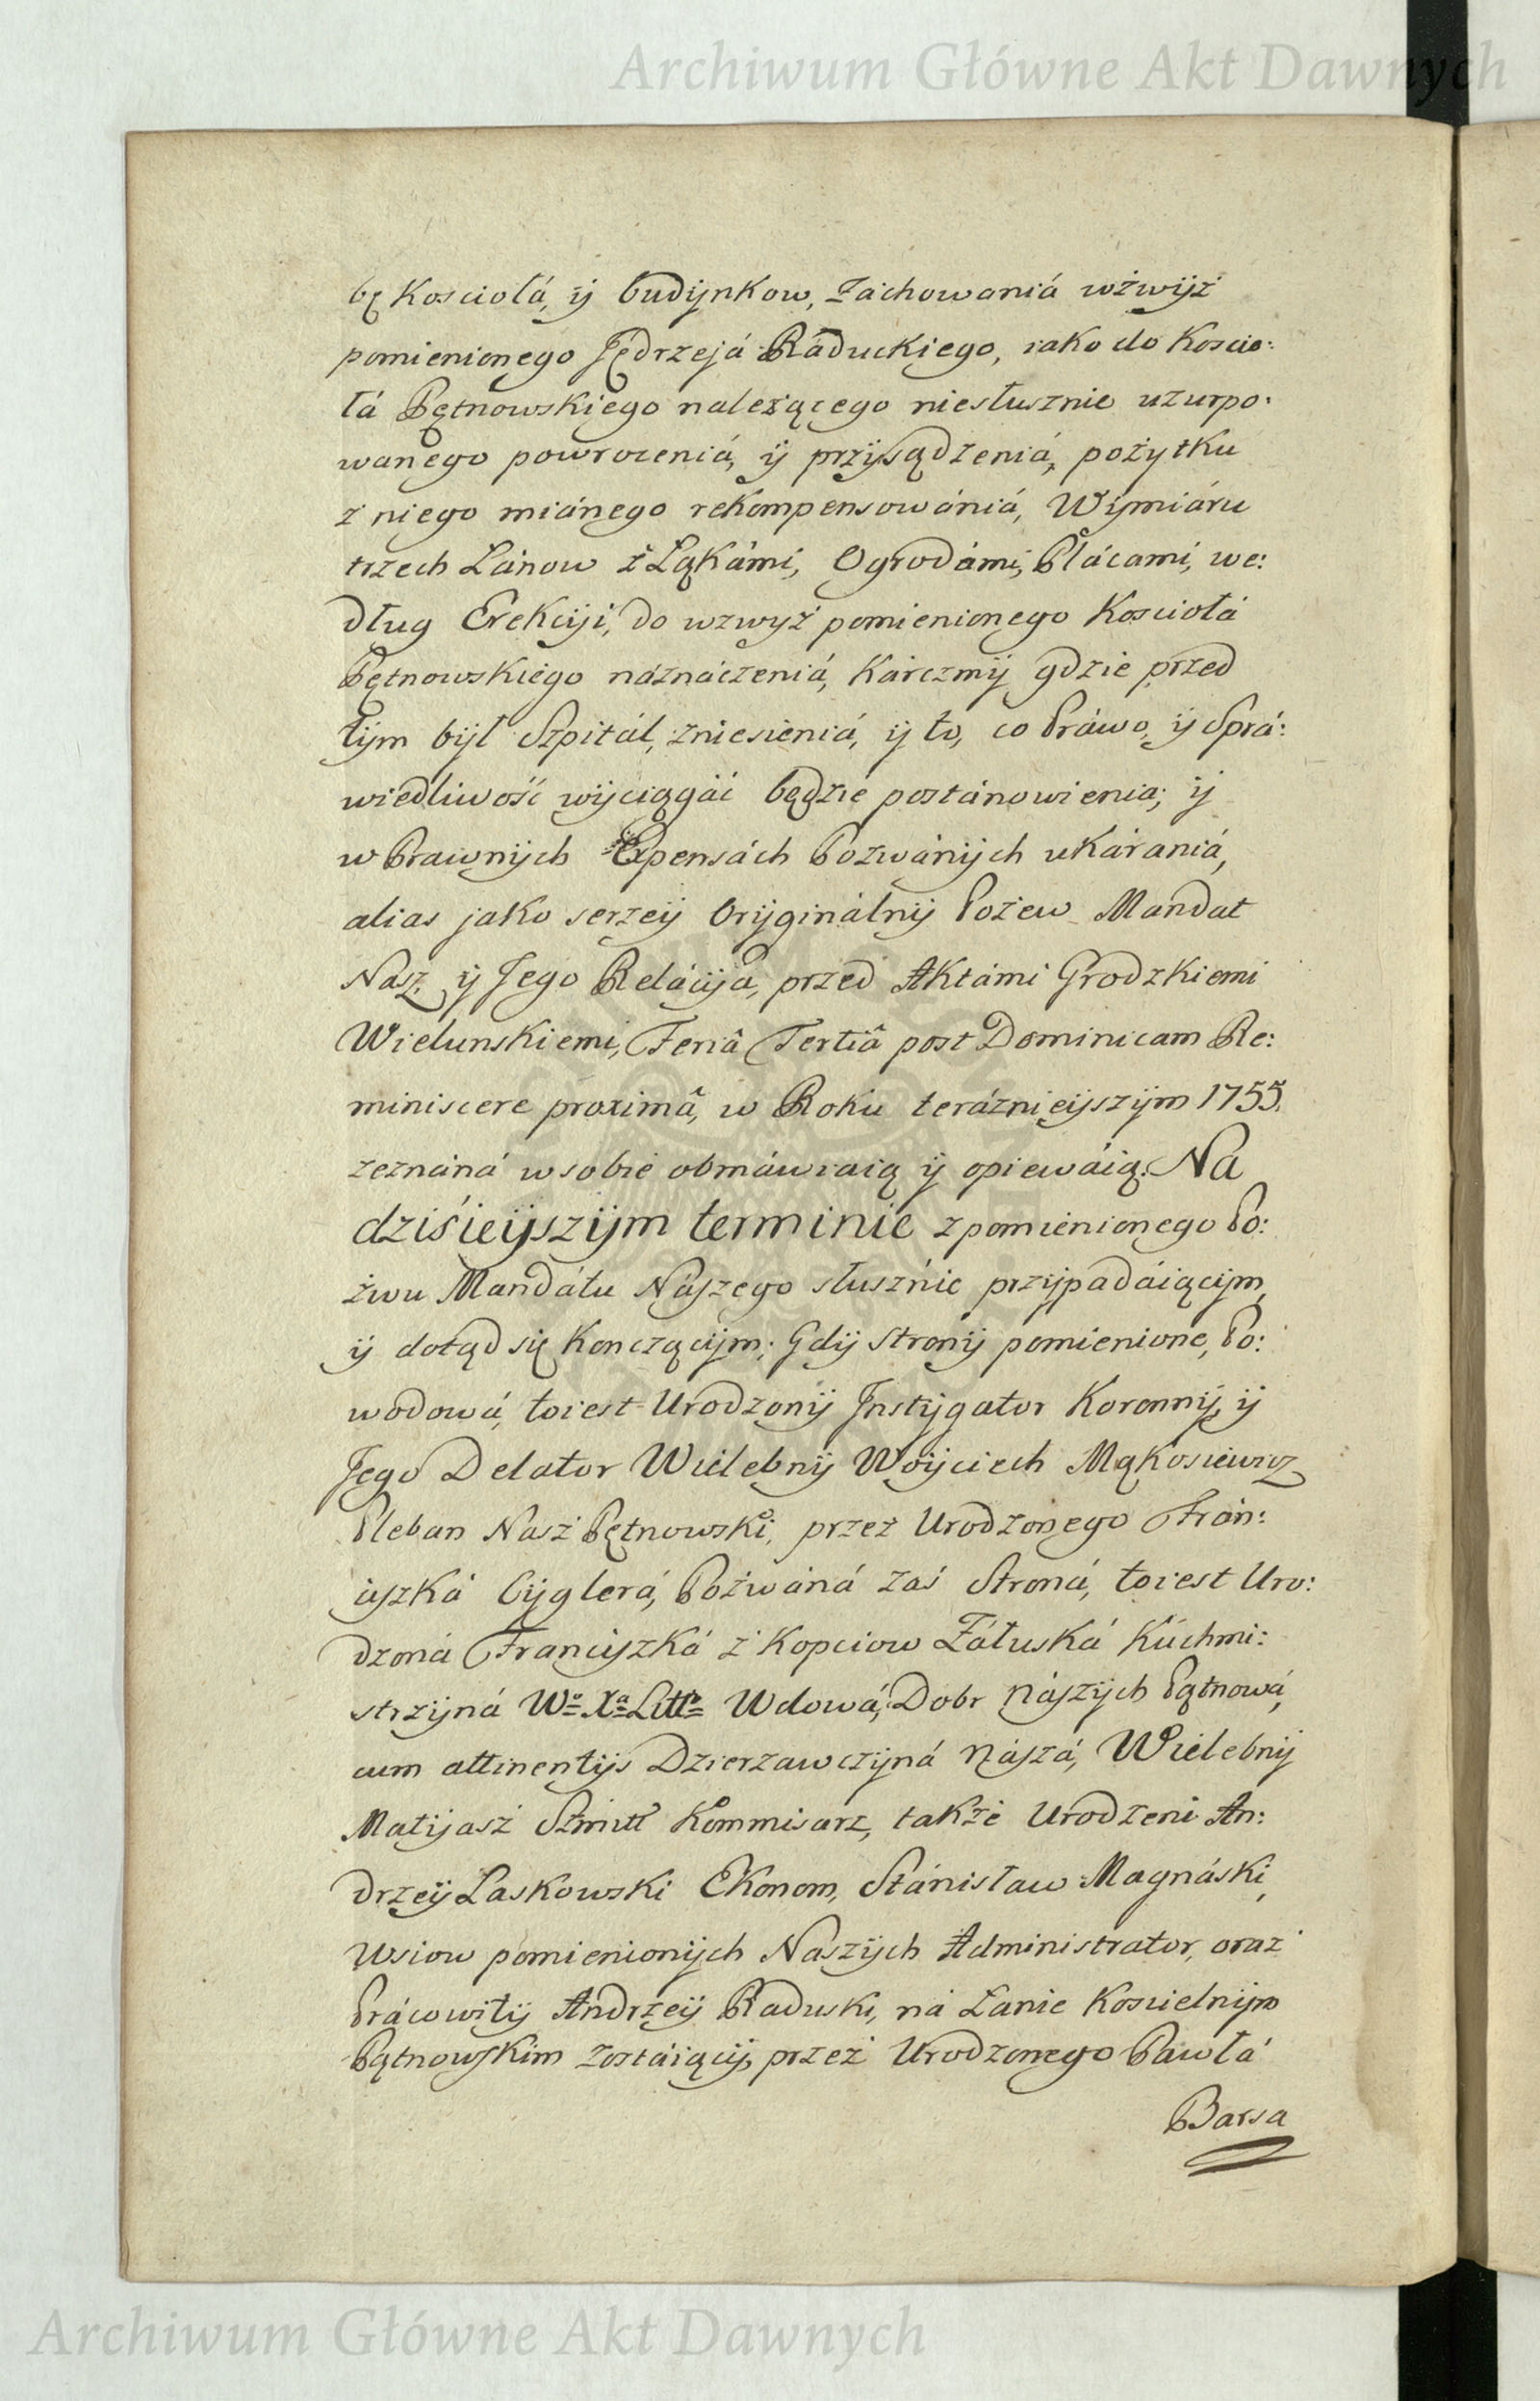 Archiwum Główne Akt Dawnych
bę Kosciołá, ij budijnkow, záchowaniá wzwijż
pomienionego Jędrzejá Ráduckiego, iako do Koscio:
łá Pętnowskiego należącego niesłusznie uzurpo:
wanego powroceniá, ij przijsądzeniá, pożytku
z niego miánego rekompensowániá, Wijmiáru
trzech Łánow z Łąkámi, Ogrodámi, Plácami, we:
dług Erekciji, do wzwyż pomienionego Kosciołá
Pętnowskiego náznáczeniá, Kárczmij gdzie przed
tijm bijł Szpitál, zniesieniá, ij to, co Práwo, ij Sprá:
wiedliwość wijciągáć będzie postánowienia; ij
w Prawnijch Expensách Pozwánijch ukárániá,
alias jako serzeij Orijginálnij Pozew Mandat
Nasz, ij Jego Relácija, przed Aktámi Grodzkiemi
Wielunskiemi, Feriâ Tertiâ post Dominicam Re:
miniscere proximâ, w Roku teráznieijszijm 1755.
zeznáná w sobie obmáwiaią ij opiewáią. Na
dziśieijszijm terminie z pomienionego Po:
zwu Mandátu Nászego słusznie przijpadáiącijm,
ij dotąd się Konczącijm; Gdij Stronij pomienione, Po:
wodowá, toiest Urodzonij Jnstijgator Koronnij, ij
Jego Delator Wielebnij Woijciech Mąkosiewicz
Pleban Nasz Pętnowski, przez Urodzonego Frán:
ciszká Cijglerá, Pozwáná zaś Stroná, toiest Uro:
dzoná Franciszká z Kopciow Załuská Kúchmi:
strzijná Wº Xª Littº Wdowá, Dobr Nászijch Pątnowá,
cum attinentijs Dzierzawczijná Nászá, Wielebnij
Matijasz Szmitt Kommisarz, także Urodzeni An:
drzeij Laskowski Ekonom, Stánisław Magnáski,
Wsiow pomienionijch Naszijch Administrator, oraz
Prácowitij Andrzeij Raduski, ná Łanie Koscielnijm
Pątnowskim zostáiącij, przez Urodzonego Pawłá
Barsa
Archiwum Główne Akt Dawnych